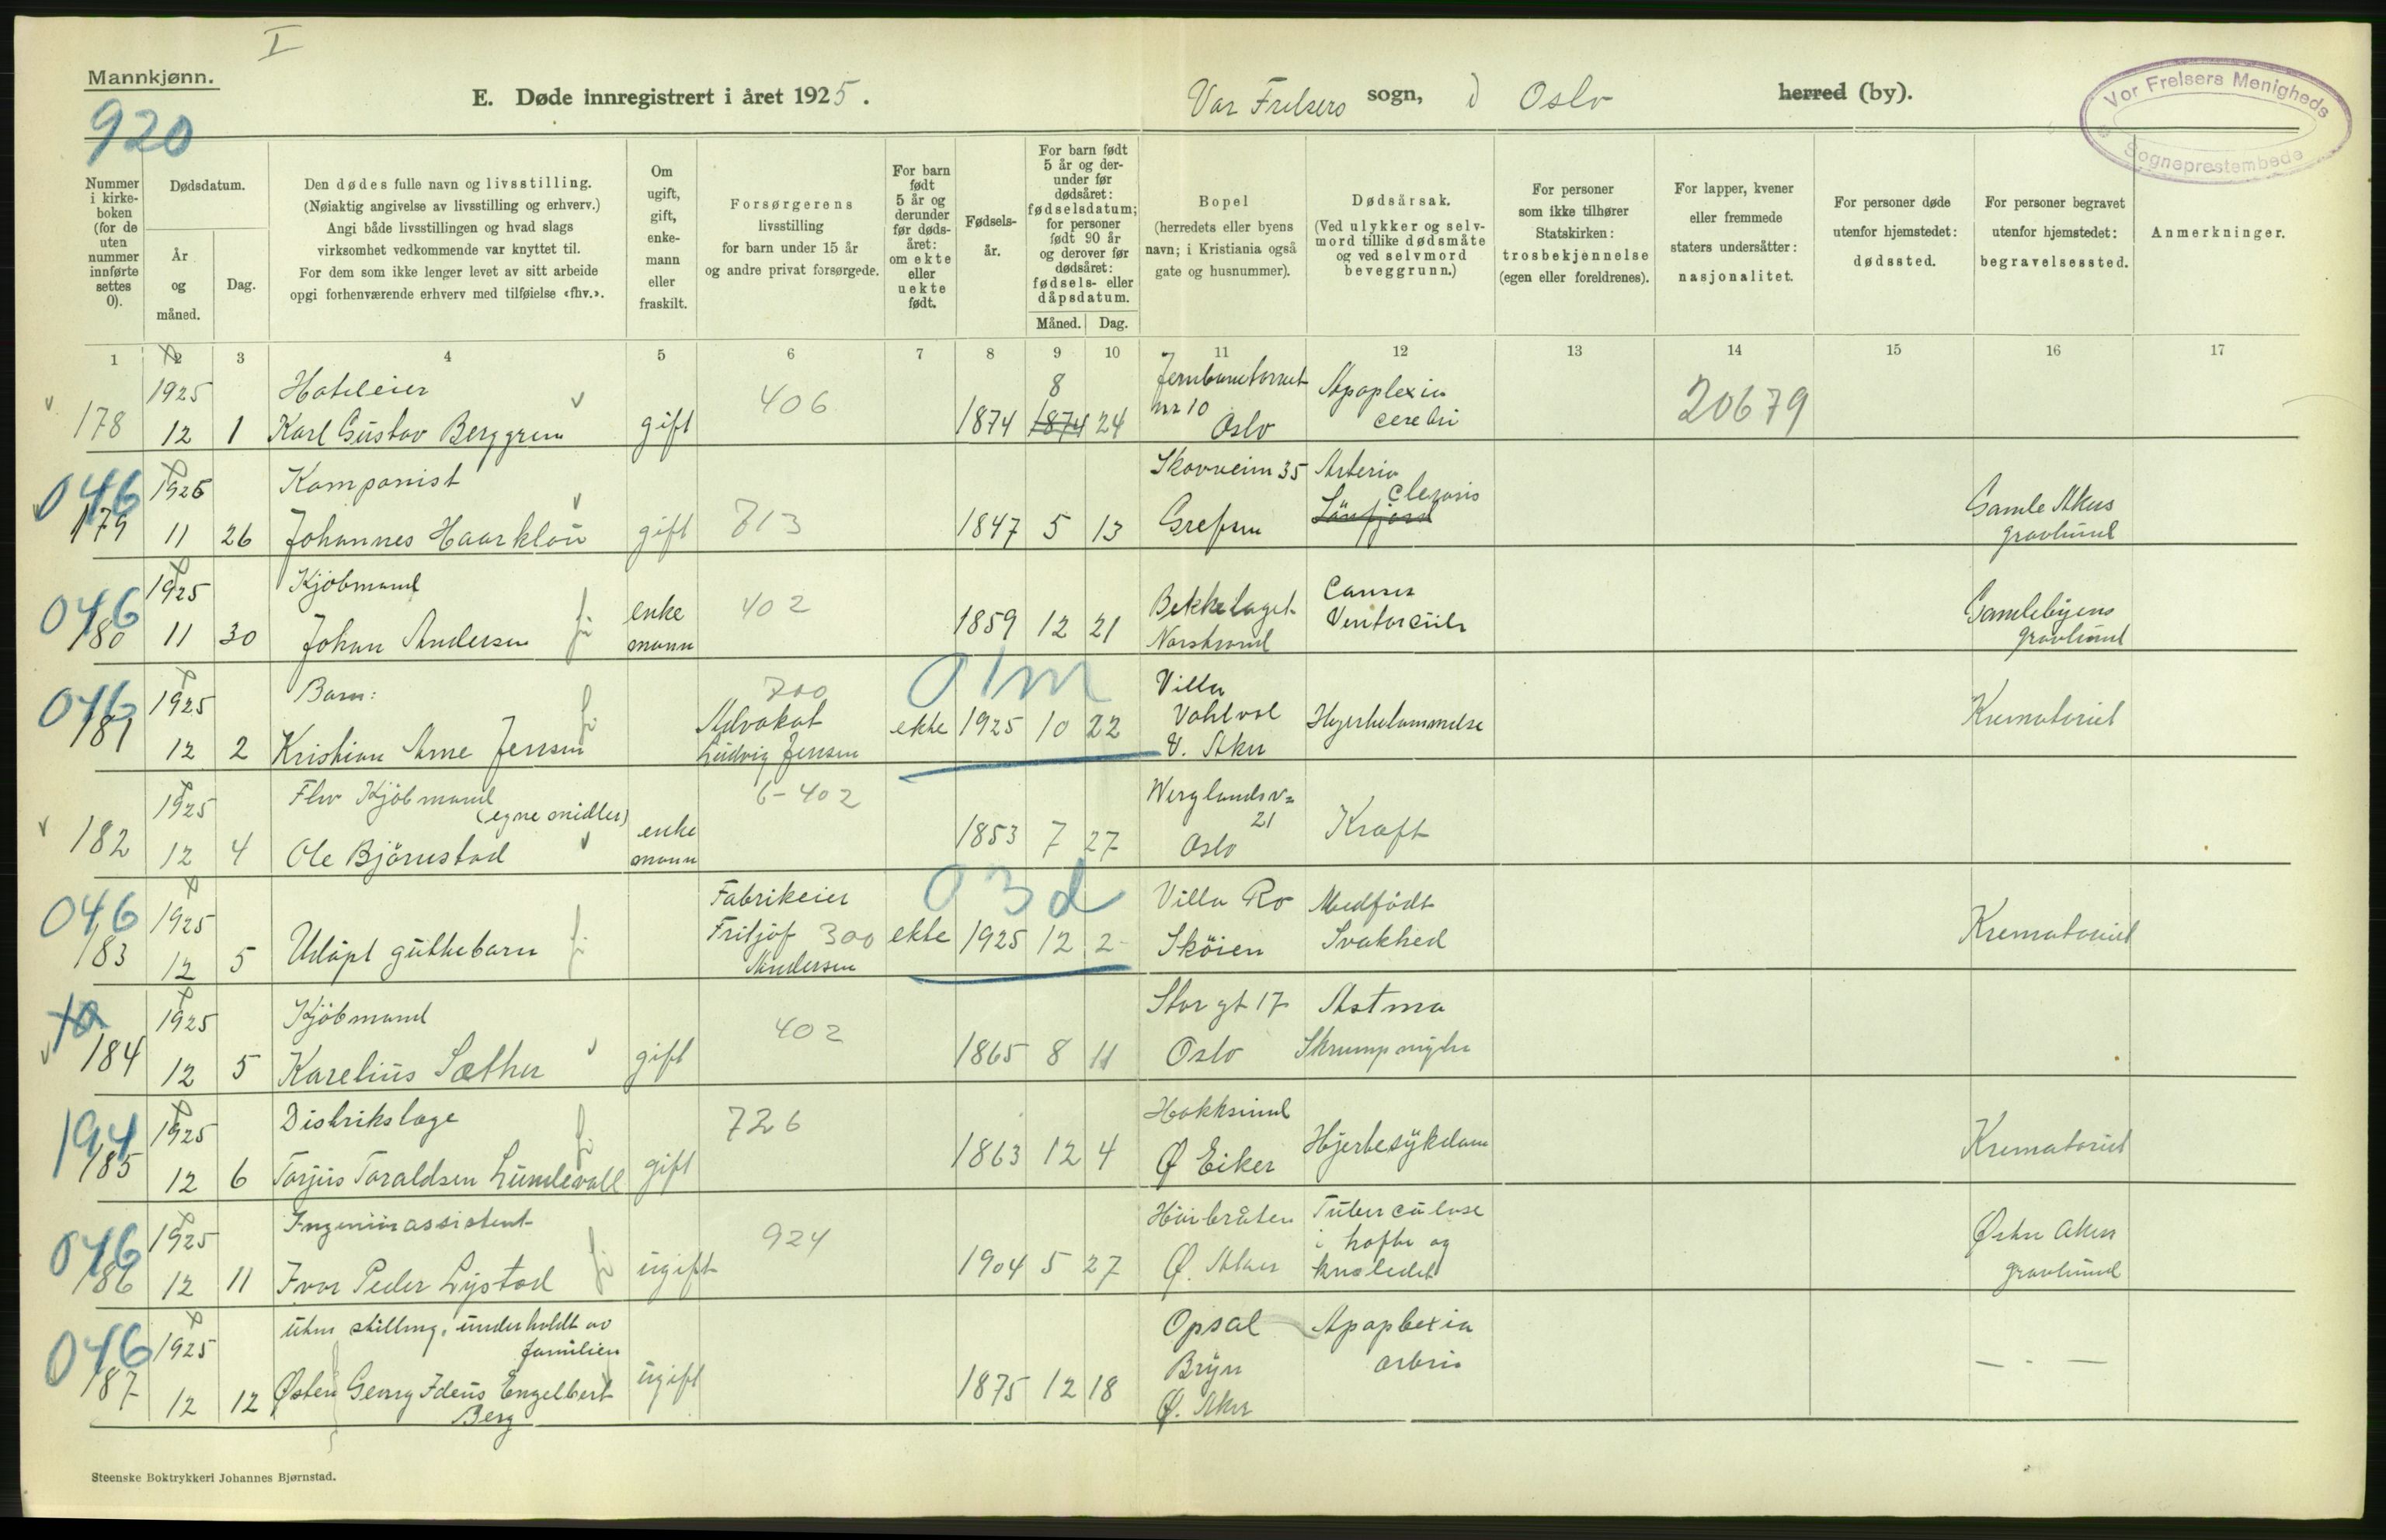 I
Mannkjønn.
920
E. Døde innregistrert i året 1925.
Vår Frelsers sogn, i Oslo herred (by).
Vor Frelsers Menigheds
Sogneprestembede
Nummer i kirke-boken (for de uten nummer innførte settes 0).
Dødsdatum.
År og måned.
Dag.
Den dødes fulle navn og livsstilling.
(Nøiaktig angivelse av livsstilling og erhverv.)
Angi både livsstillingen og hvad slags
virksomhet vedkommende var knyttet til.
For dem som ikke lenger levet av sitt arbeide
opgi forhenværende erhverv med tilføielse «fhv.».
Om ugift, gift, enke-mann eller fraskilt.
Forsørgerens
livsstilling
for barn under 15 år
og andre privat forsørgede.
For barn født 5 år og derunder før døds-året: om ekte eller uekte født.
Fødsels-år.
For barn født 5 år og der-under før dødsåret: fødselsdatum; for personer født 90 år og derover før dødsåret: fødsels- eller dåpsdatum.
Måned. Dag.
Bopel
(herredets eller byens
navn; i Kristiania også
gate og husnummer).
Dødsårsak.
(Ved ulykker og selv-
mord tillike dødsmåte
og ved selvmord
beveggrunn.)
For personer
som ikke tilhører
Statskirken:
trosbekjennelse
(egen eller foreldrenes).
For lapper, kvener
eller fremmede
staters undersåtter:
nasjonalitet.
For personer døde
utenfor hjemstedet:
dødssted.
For personer begravet
utenfor hjemstedet:
begravelsessted.
Anmerkninger.
1 2 3 4 5 6 7 8 9 10 11 12 13 14 15 16 17
1925 Hoteleier 406 8 Jernbanetorvet Apoplexia 20679
178 12 1 Karl Gustav Berggren gift 1874 1874 24 nr 10 Oslo cerebri
046 1925 Komponist 713 Skovveien 35 Arterio clerosis Gamle Akers
179 11 26 Johannes Haarklou gift 1847 5 13 Grefsen gravlund
046 1925 Kjöbmand enke 402 Bekkelaget Cancer Gamlebyens
180 11 30 Johan Andersen mann 1859 12 21 Norstrand Ventorculi gravlund
046 1925 Barn: 700 01m Villa
181 Advokat ekte 1925 10 22 Vohlvol Hjernebetennelse Krematoriet
12 2 Kristian Arne Jensen Ludvig Jensen V. Aker
1925 Fhv Kjöbmand (egne midler) 6-402 Werglandsv. 21
182 12 4 Ole Björnstad enke mann 1853 7 27 Oslo Kræft
046 1925 Fabrikeier 03d Villa Ro Medfödt
183 12 5 Udöpt guttebarn Fritjof 300 ekte 1925 12 2 Sköien Svakhed Krematoriet
Andersen
1925 Kjöbmand 402 Storgt 17 Astma
184 12 5 Karelius Sæther gift 1865 8 11 Oslo Skrumpnyre
194 1925 Distrikslæge 726 Hokksund
185 12 6 Torjus Toraldsen Lundevall gift 1863 12 4 Ø Eiker Hjertesykdom Krematoriet
046 1925 Ingeniörassistent 924 Tuberculose Østre Aker
186 12 11 Ivar Peder Lystad ugift 1904 5 27 Ø. Aker i hofte og knæledet gravlund
046 1925 uten stilling, underholdt av familien Opsal Apoplexia
187 12 12 Østen Georg Idens Engelbert Berg ugift 1875 12 18 Bryn Ø. Aker — " —
Steenske Boktrykkeri Johannes Bjørnstad.